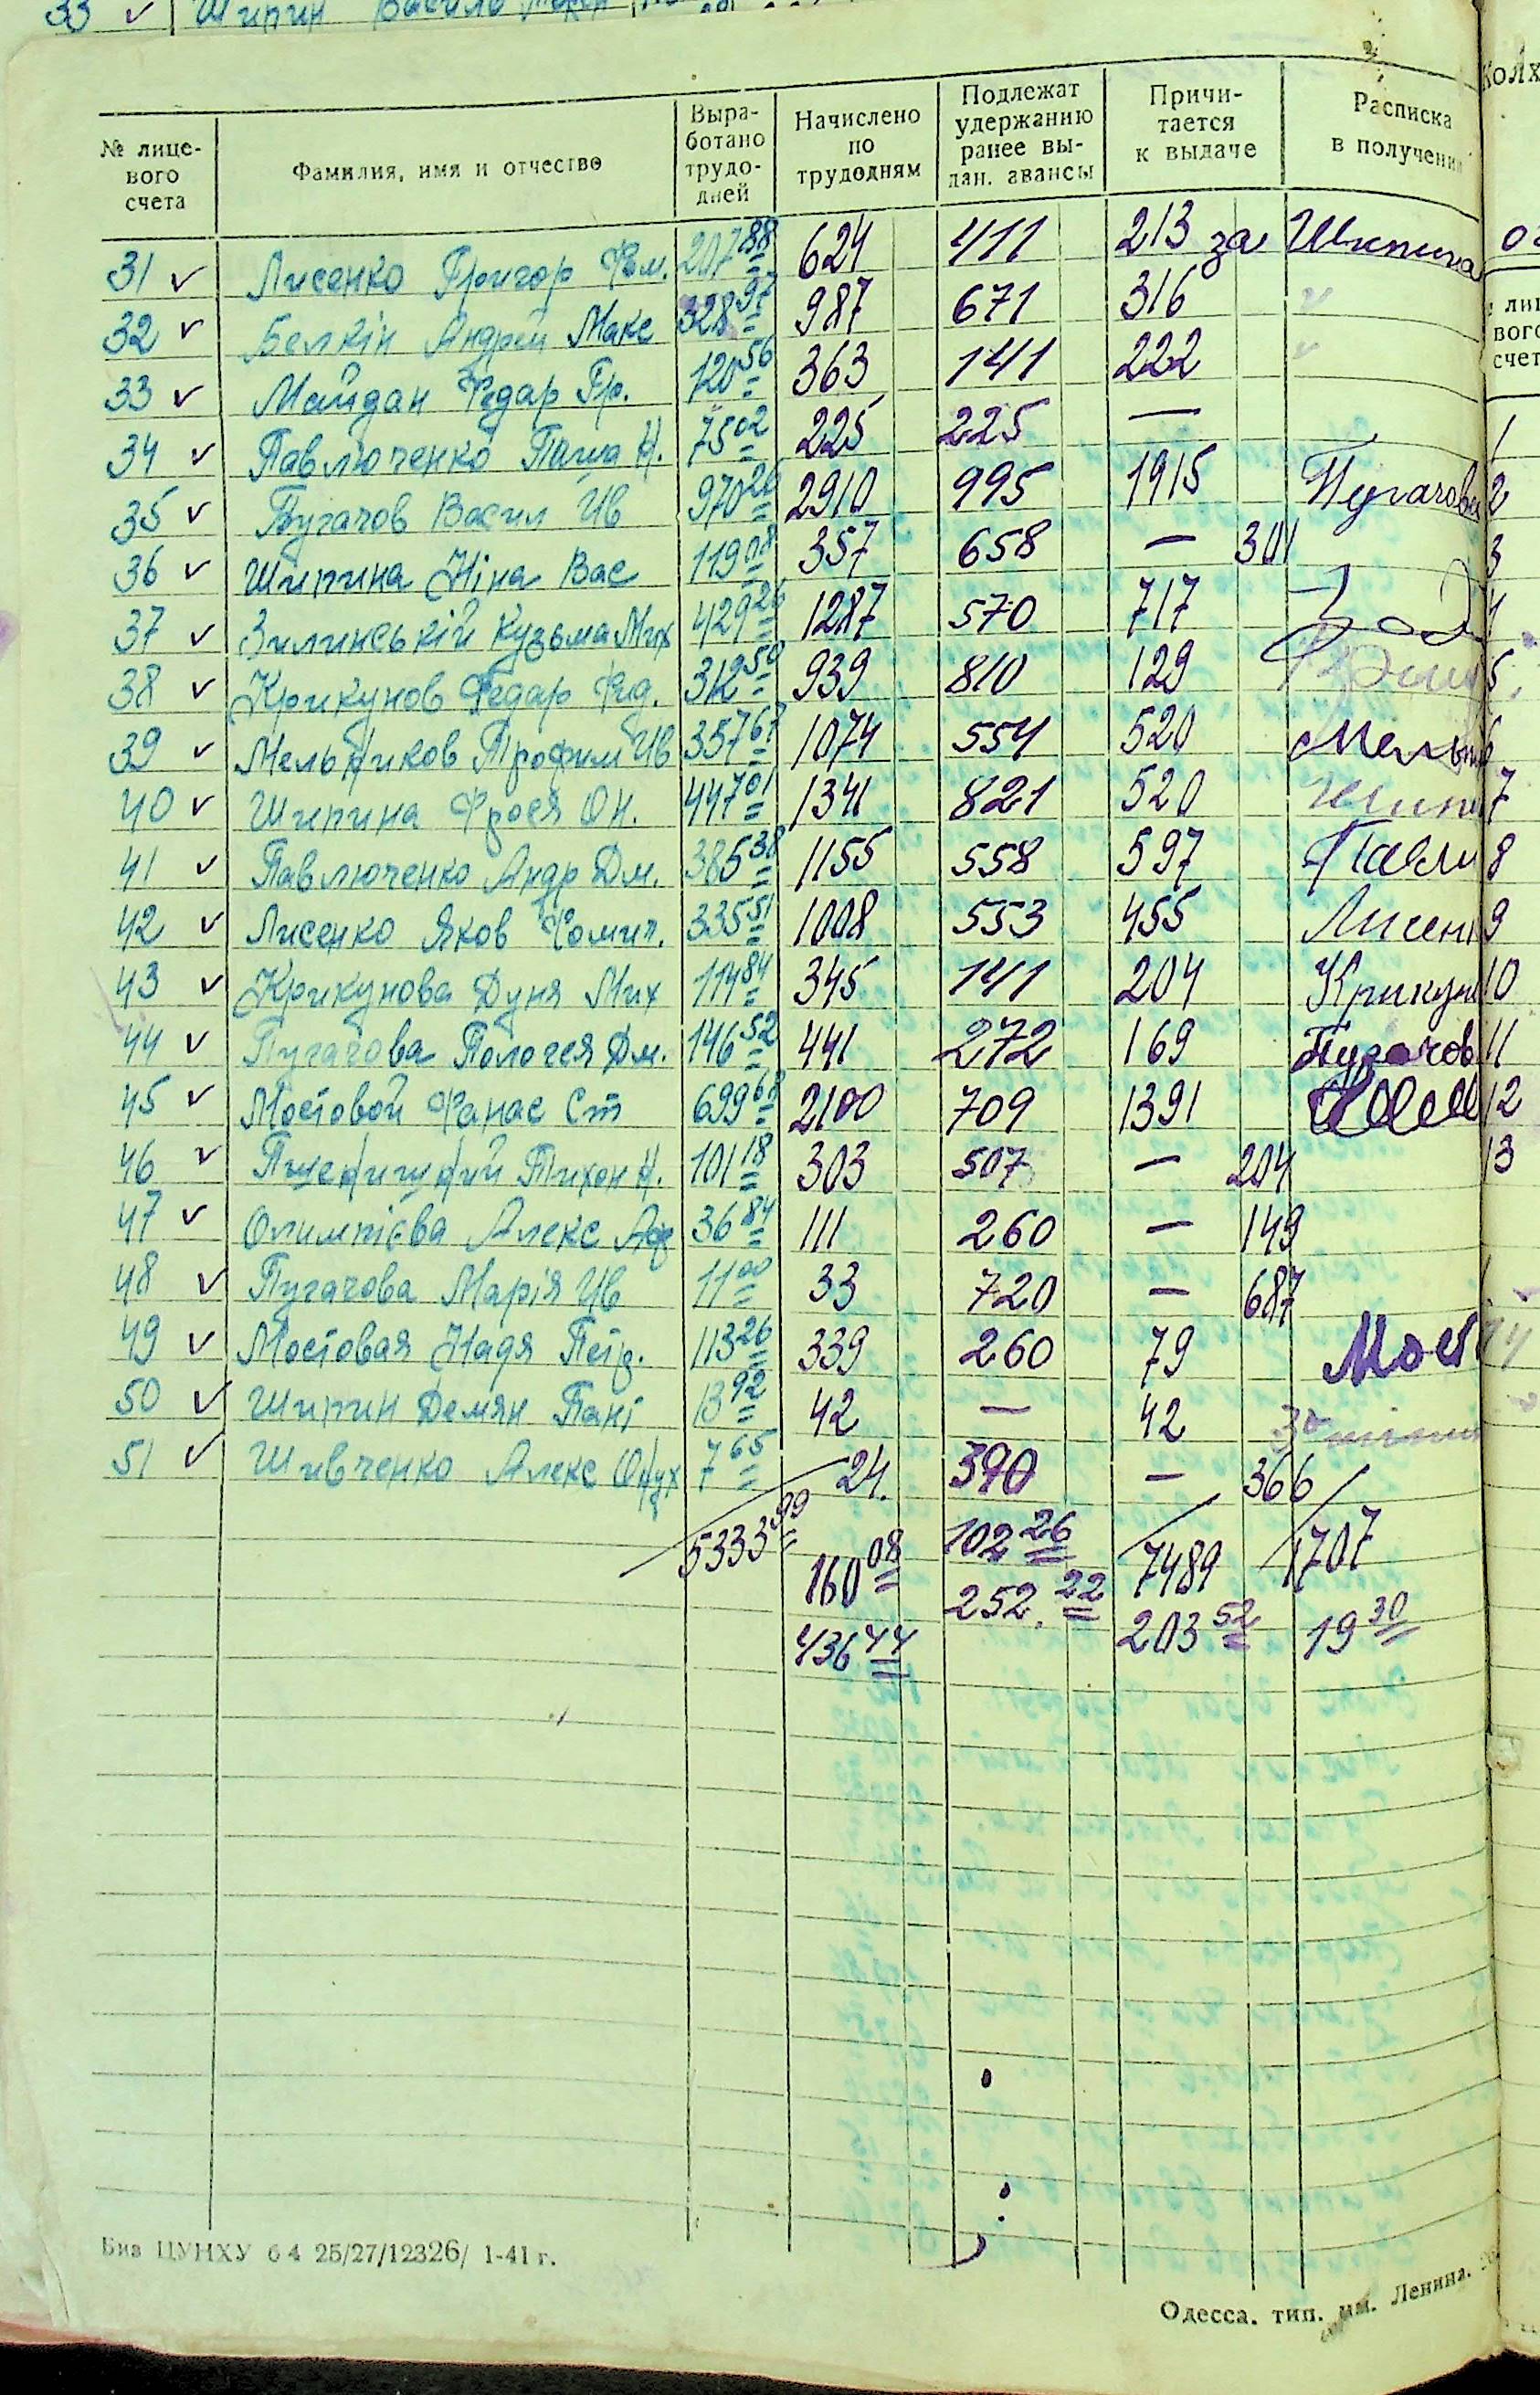 33 ✓ Ширин Василь
№ лице-вого счета | Фамилия, имя и отчество | Выра-ботано трудо-дней | Начислено по трудодням | Подлежат удержанию ранее вы-дан. авансы | Причи-тается к выдаче | Расписка в получении
31 ✓ Лисенко Григор Фом. 207 88 624 411 213 за Шипина
32 ✓ Белкін Андрій Макс 328 97 987 671 316 ✓
33 ✓ Майдан Федар Гр. 120 56 363 141 222 ✓
34 ✓ Павлюченко Н. 75 02 225 225 —
35 ✓ Пугачов Васил Ив 970 26 2910 995 1915 Пугачова
36 ✓ Ширина Ніна Вас 119 08 357 658 — 301
37 ✓ Зилинській Кузьма Мих 429 26 1287 570 717
38 ✓ Крикунов Федар Фед. 312 50 939 810 129
39 ✓ Мельников Трофим Ив 357 67 1074 554 520 Мельн
40 ✓ Ширина Фрося Он. 447 01 1341 821 520
41 ✓ Павлюченко Андр Дм. 385 38 1155 558 597 Павлю
42 ✓ Лисенко Яков Фомич. 335 51 1008 553 455 Лисен
43 ✓ Крикунова Дуня Мих 114 84 345 141 204 Крикун
44 ✓ Пугачова Пологея Дм. 146 52 441 272 169 Пугачов
45 ✓ Мостовой Фанас Ст 699 68 2100 709 1391
46 ✓ Тихон Н. 101 18 303 507 — 204
47 ✓ Олимпієва Алекс Аф 36 84 111 260 — 149
48 ✓ Пугачова Марія Ив 11 00 33 720 — 687
49 ✓ Мостовая Надя Петр. 113 26 339 260 79 Мост
50 ✓ Ширин Демян Пані 13 92 42 — 42 За
51 ✓ Шивченко Алекс Онух 7 65 24. 390 — 366
5333 99 160 08 102 26 7489 1707
436 44 252. 22 203 52 19 30
Биз ЦУНХУ б 4 25/27/12326/ 1-41 г.
Одесса. тип. им. Ленина.
Колх
лиц
вого
счет
1
2
3
4
5
6
7
8
9
10
11
12
13
14